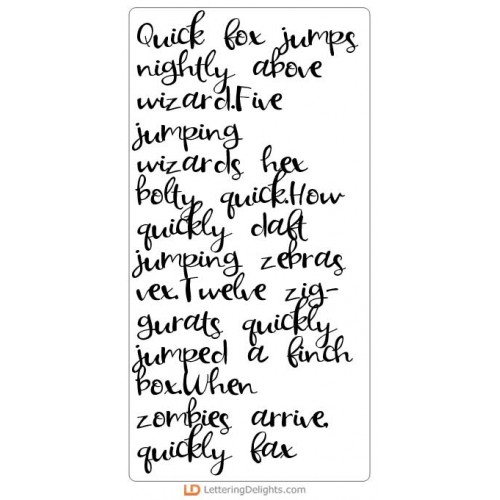 Quick fox jumps
nightly above
wizard.Five
jumping
wizards hex
bolty quick.How
quickly daft
jumping zebras
vex.Twelve zig-
gurats quickly
jumped a finch
box.When
zombies arrive,
quickly fax
LD LetteringDelights.com